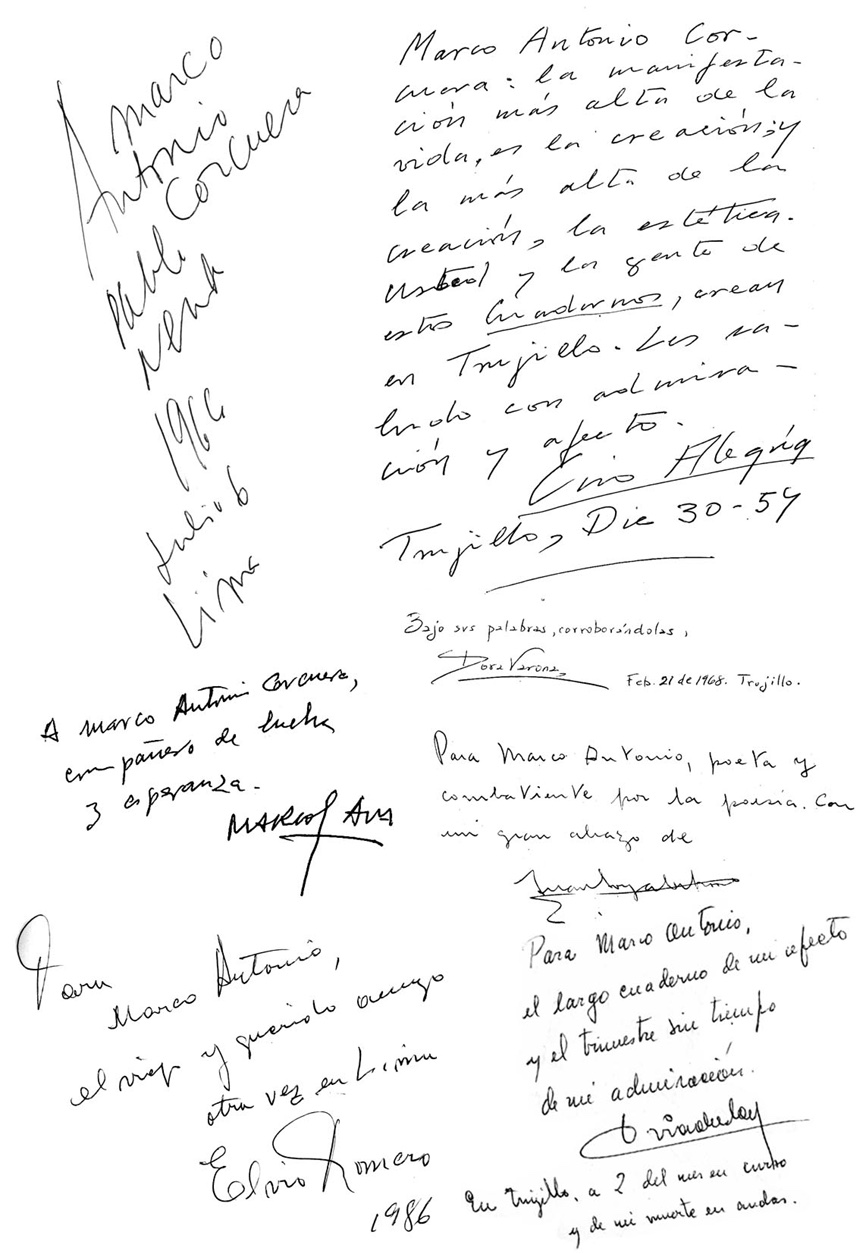 Marco
Antonio
Corcuera
Pablo
Neruda
1966
Julio 6
Lima
Marco Antonio Cor-
cuera: la manifesta-
ción más alta de la
vida, es la creación; y
la más alta de la
creación, la estética.
Usted y la gente de
estos Cuadernos, crean
en Trujillo. Les sa-
ludo con admira-
ción y afecto.
Ciro Alegría
Trujillo, Dic 30-59
Bajo sus palabras, corroborándolas,
Dora Varona
Feb. 21 de 1968. Trujillo.
A Marco Antonio Corcuera,
compañero de lucha
y esperanza.
MARCOS ANA
Para Marco Antonio, poeta y
combatiente por la poesía. Con
un gran abrazo de
Para
Marco Antonio,
el viejo y querido amigo
otra vez en Lima
Elvio Romero
1986
Para Marco Antonio,
el largo cuaderno de mi afecto
y el trimestre sin tiempo
de mi admiración.
En Trujillo, a 2 del mes en curso
y de mi muerte en andas.